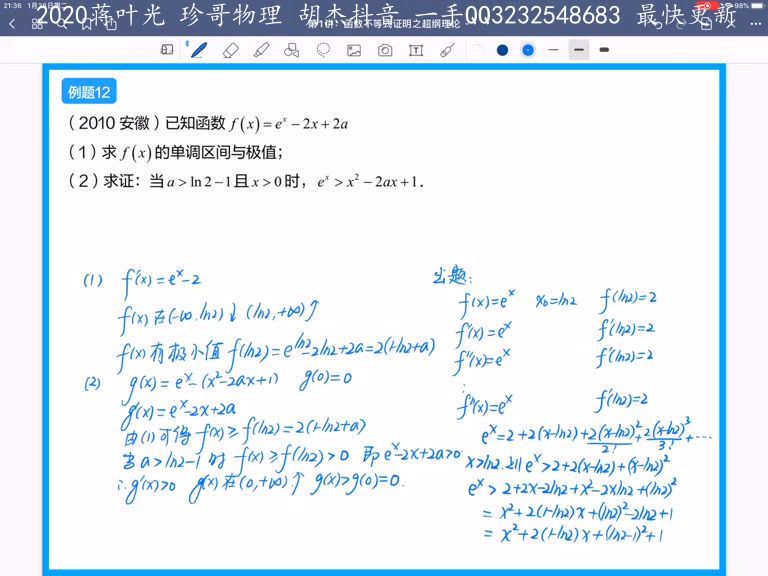 21:36 1月28日周二
98%
2020蒋叶光 珍哥物理 胡杰抖音 一手QQ3232548683 最快更新
第1讲：函数不等式证明之超纲理论
例题12
（2010 安徽）已知函数 f(x)=eˣ−2x+2a
（1）求 f(x)的单调区间与极值；
（2）求证：当 a>ln2−1且 x>0时，eˣ>x²−2ax+1．
(1) f'(x)=eˣ-2
f(x)在(-∞,ln2)↓ (ln2,+∞)↑
f(x)有极小值 f(ln2)=e^ln2-2ln2+2a=2(1-ln2+a)
(2) g(x)=eˣ-(x²-2ax+1) g(0)=0
g'(x)=eˣ-2x+2a
由(1)可得 f(x)≥f(ln2)=2(1-ln2+a)
当a>ln2-1时 f(x)≥f(ln2)>0 即eˣ-2x+2a>0
∴g'(x)>0 g(x)在(0,+∞)↑ g(x)>g(0)=0.
出题:
f(x)=eˣ x₀=ln2 f(ln2)=2
f'(x)=eˣ f'(ln2)=2
f''(x)=eˣ f''(ln2)=2
⋮
fⁿ(x)=eˣ fⁿ(ln2)=2
eˣ=2+2(x-ln2)+2(x-ln2)²/2!+2(x-ln2)³/3!+⋯
x>ln2时 eˣ>2+2(x-ln2)+(x-ln2)²
eˣ>2+2x-2ln2+x²-2xln2+(ln2)²
=x²+2(1-ln2)x+(ln2)²-2ln2+1+1
=x²+2(1-ln2)x+(ln2-1)²+1